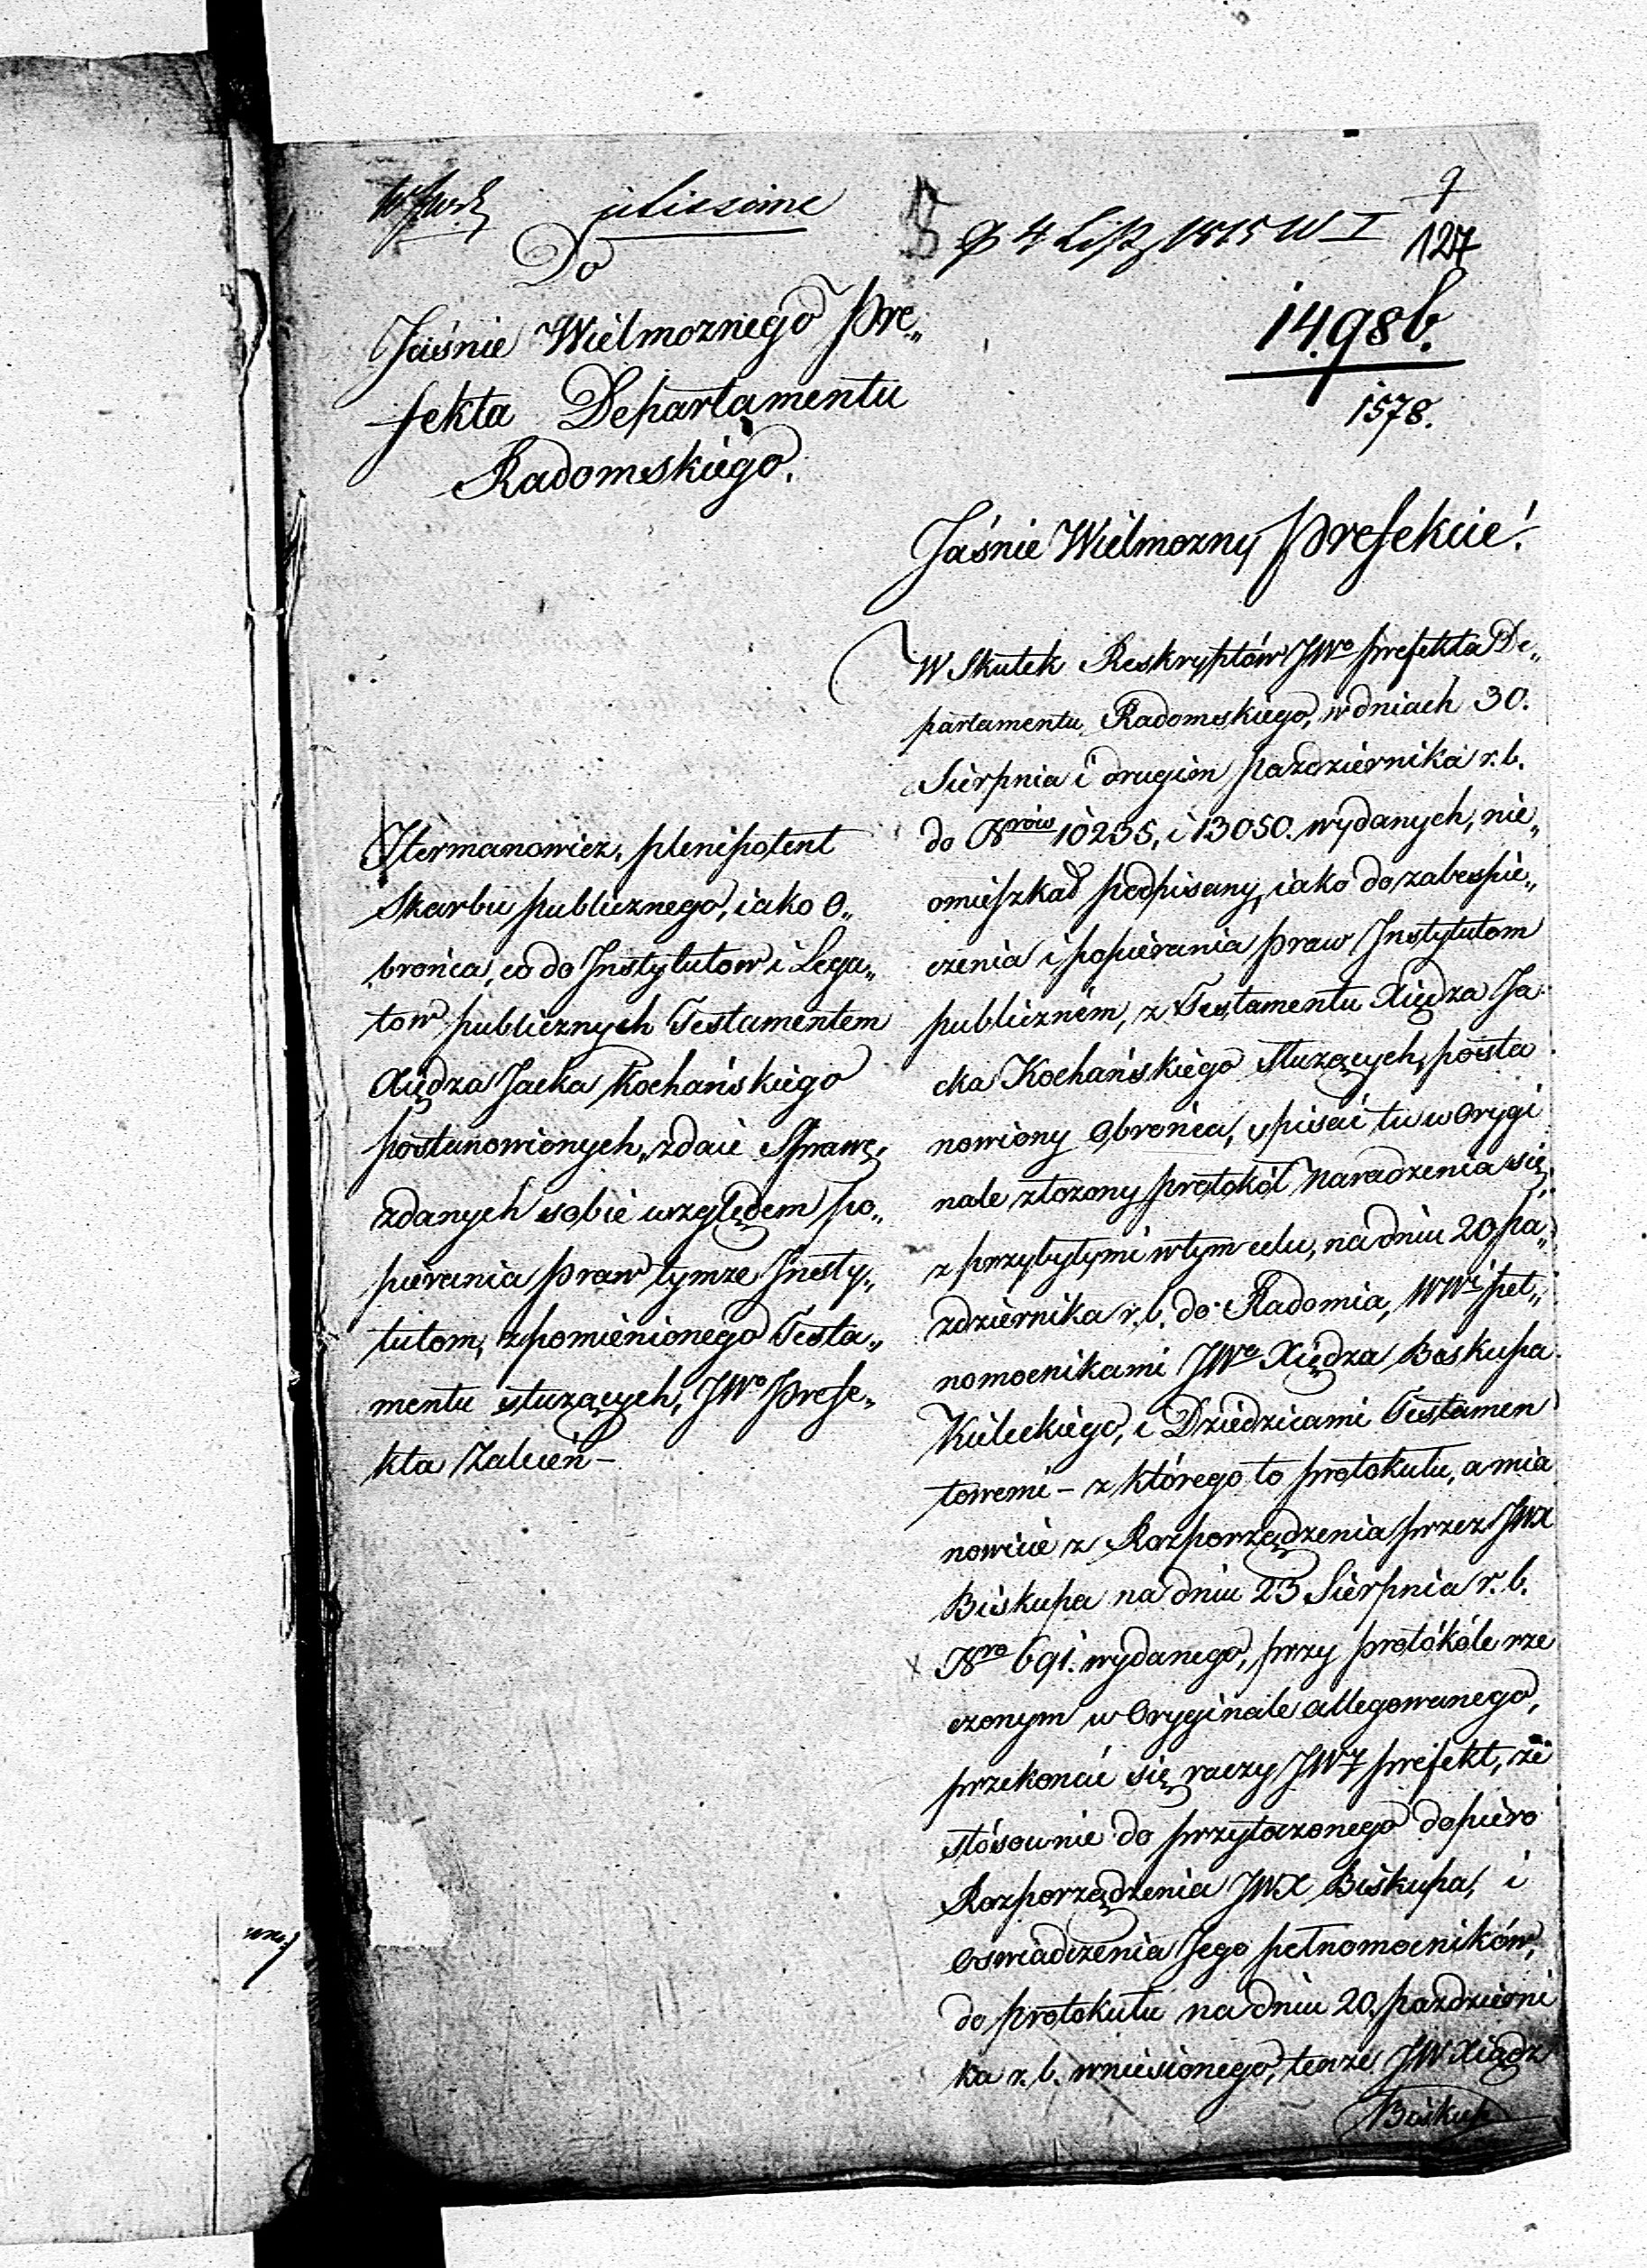 Do
Jaśnie Wielmoznego Pre„
fekta Departamentu
Radomskiego.
4 1815 W I
9
127
1498b.
1578.
Jaśnie Wielmozny Prefekcie!
Htermanowicz, plenipotent
Skarbu publicznego, iako O„
brońca, co do Instytutow i Lega„
tow publicznych Testamentem
Xiędza Jacka Kochańskiego
postanowionych, zdaie Sprawę,
zdanych sobie względem po„
pierania Praw tymze Insty„
tutom, zpomienionego Testa„
mentu słuzących, JWo Prefe„
kta Zaleceń –
W Skutek Reskryptów JWo Prefekta De„
partamentu Radomskiego, w dniach 30.
Sierpnia i drugim Pazdziernika r. b.
do Nrów 10235, i 13050. wydanych, nie„
omieszkał podpisany, iako do zabespie„
czenia i popierania praw Instytutom
publicznem, z Testamentu Xiędza Ja
cka Kochańskiego słuzących, posta
nowiony Obrońca, spisać tu w Orygi
nale złozony protokół Naradzenia się,
z przybyłymi w tym celu, na dniu 20 Pa„
zdziernika r. b. do Radomia, WWi Peł„
nomocnikami JWo Xiędza Biskupa
Kieleckiego, i Dziedzicami Testamen
towemi – z którego to protokułu, a mia
nowicie z Rozporządzenia przez JWX
Biskupa na dniu 23 Sierpnia r. b.
Nro 691. wydanego, przy protókóle rze
czonym w Oryginale allegowanego,
przekonać się raczy JWy Prefekt, że
stósownie do przytoczonego dopiero
Rozporządzenia JWX Biskupa, i
Oswiadczenia Jego pełnomocników,
do protokułu na dniu 20. pazdzierni
ka r. b. wniesionego, tenze JW Xiądz
Biskup